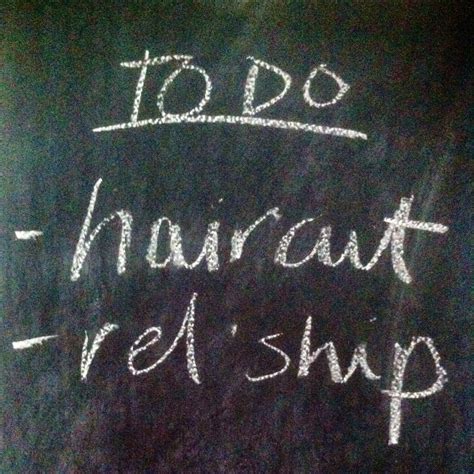 TO DO
- haircut
- rel'ship